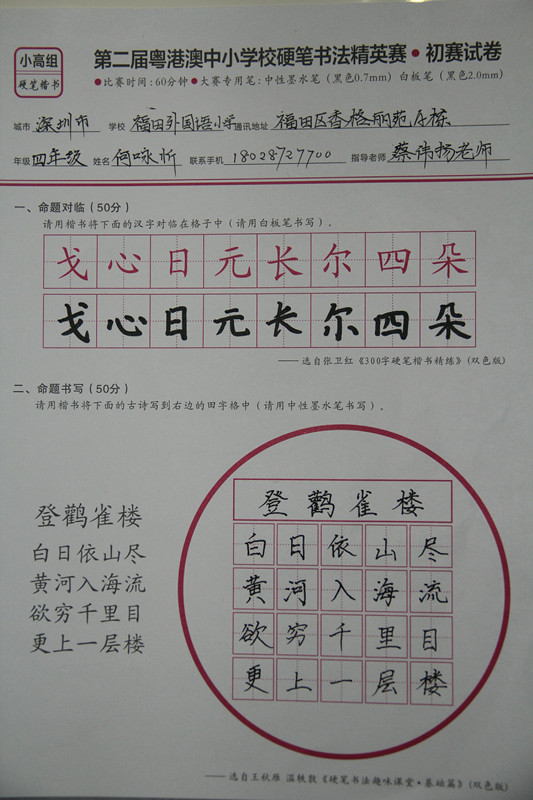 小高组
硬笔楷书
第二届粤港澳中小学校硬笔书法精英赛·初赛试卷
●比赛时间:60分钟●大赛专用笔:中性墨水笔(黑色0.7mm) 白板笔(黑色2.0mm)
城市 深圳市 学校 福田外国语小学 通讯地址 福田区香格丽苑
年级 四年级 姓名 何咏忻 联系手机 18028727700 指导老师 蔡伟扬老师
一、命题对临(50分)
请用楷书将下面的汉字对临在格子中(请用白板笔书写)。
戈心日元长尔四朵
戈心日元长尔四朵
——选自张卫红《300字硬笔楷书精练》(双色版)
二、命题书写(50分)
请用楷书将下面的古诗写到右边的田字格中(请用中性墨水笔书写)。
登鹳雀楼
白日依山尽
黄河入海流
欲穷千里目
更上一层楼
登鹳雀楼
白日依山尽
黄河入海流
欲穷千里目
更上一层楼
——选自王秋雁 温轶敦《硬笔书法趣味课堂·基础篇》(双色版)